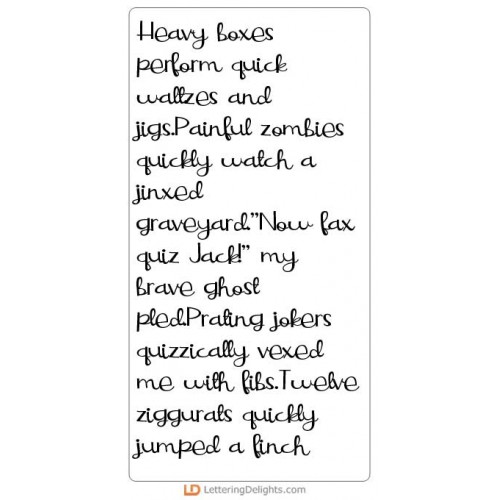 Heavy boxes
perform quick
waltzes and
jigs.Painful zombies
quickly watch a
jinxed
graveyard."Now fax
quiz Jack!" my
brave ghost
pled.Prating jokers
quizzically vexed
me with fibs.Twelve
ziggurats quickly
jumped a finch
LD LetteringDelights.com